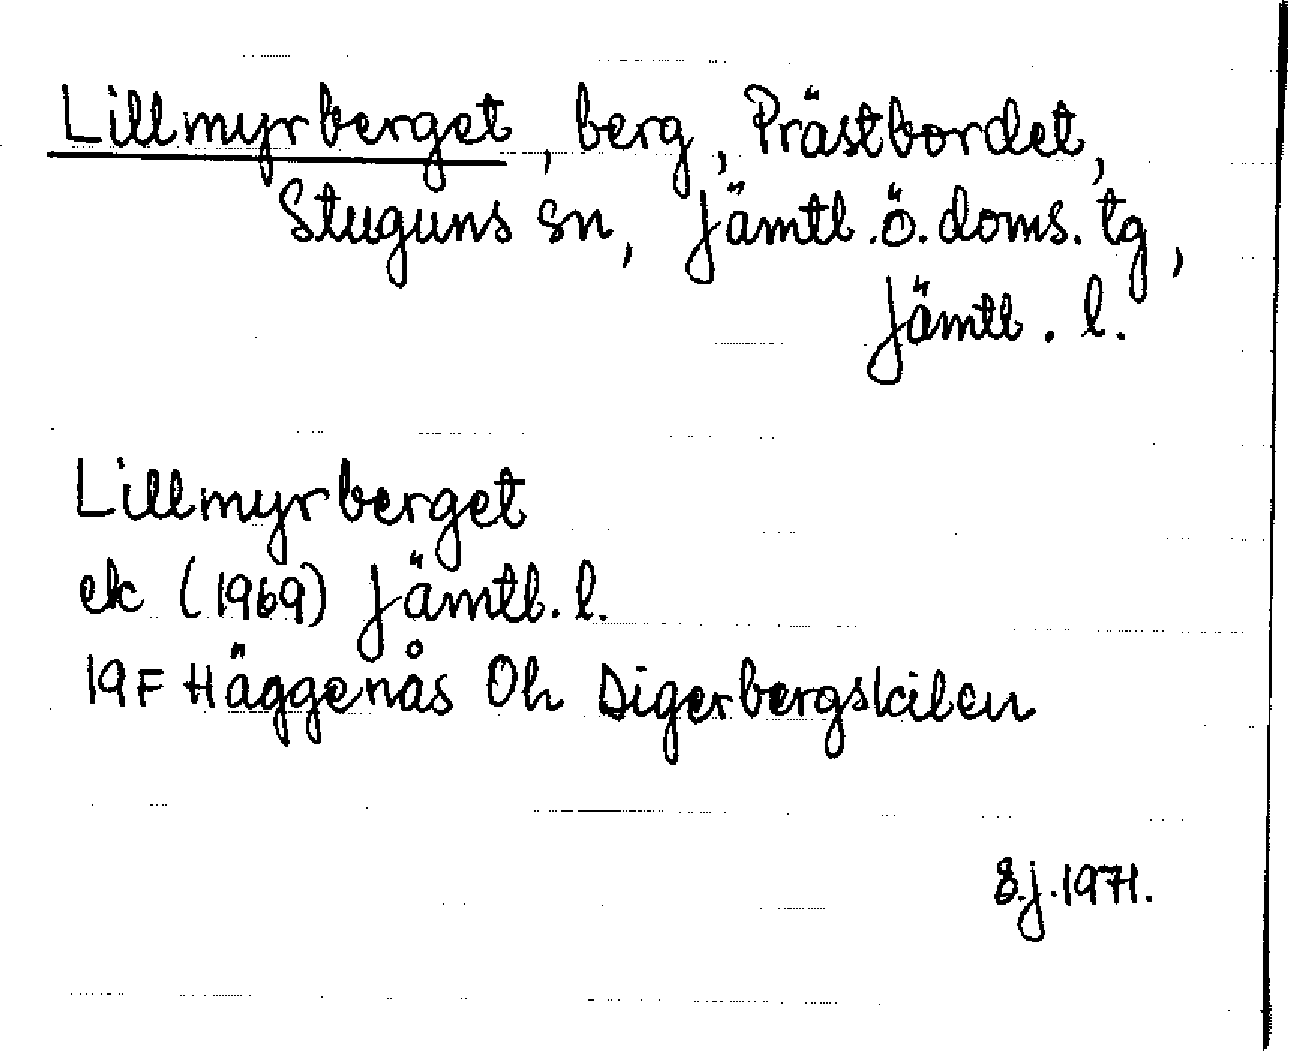 Lillmyrberget, berg, Prästbordet,
Stuguns sn, Jämtl.ö.doms.tg,
Jämtl. l.
Lillmyrberget
ek (1969) Jämtl. l.
19F Häggenås Oh Digerbergskilen
8.j.1971.